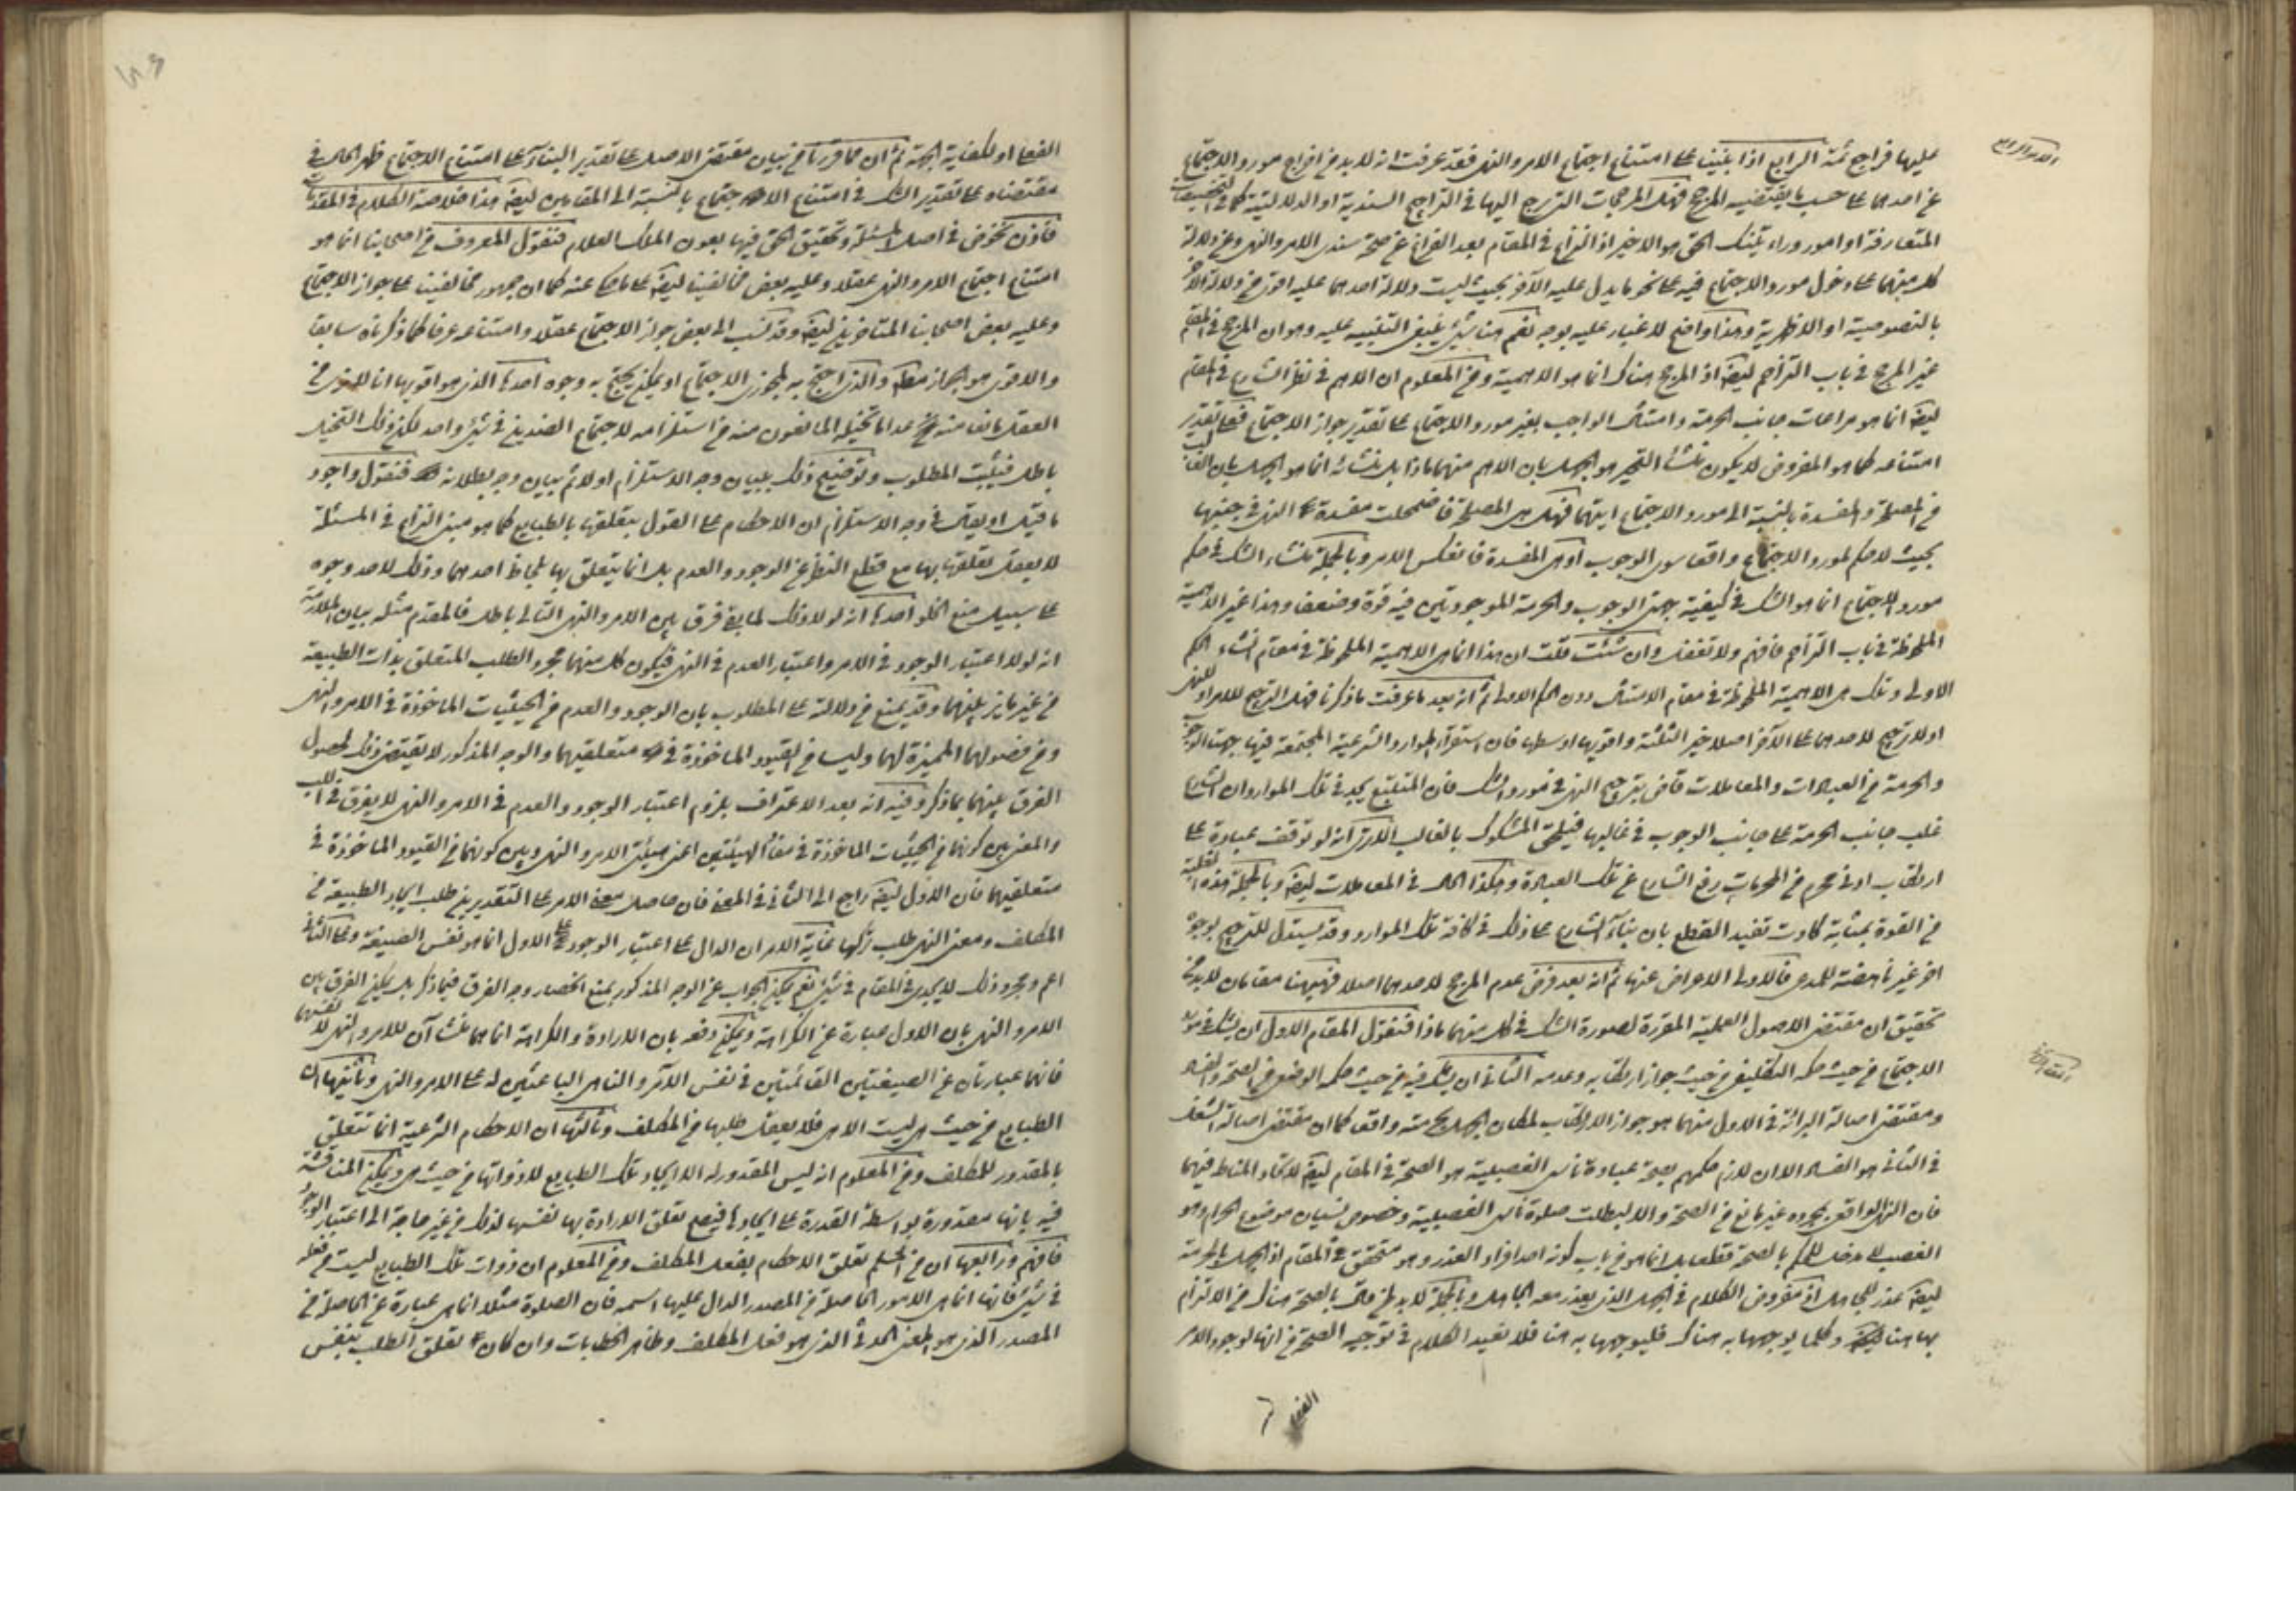 عليها فراجع ثمة الرابع اذا بنينا على امتناع اجتماع الامر والنهى فقد عرفت انه لا بد من اخراج مورد الاجتماع
عن احدهما على حسب ما يقتضيه المرجح فهل المرجحات التى يرجع اليها فى التراجيح السندية او الدلالتية كما فى
المتعارفة او امور وراء تلك الحق هو الاخير اذ النزاع فى المقام بعد الفراغ عن صحة سندى الامر والنهى وعن دلالة
كل منهما على دخول مورد الاجتماع فيه على نحو ما يدل عليه الآخر بحيث ليست دلالة احدهما عليه اقوى من دلالة الآخر
بالنصوصية او الاظهرية وهذا واضح لا غبار عليه بوجه نعم هنا شىء ينبغى التنبيه عليه وهو ان المرجح فى المقام
غير المرجح فى باب التزاحم ايضا اذ المرجح هناك انما هو الاهمية ومن المعلوم ان الاهم فى نظر الشارع فى المقام
ايضا انما هو مراعات جانب الحرمة وامتثال الواجب بغير مورد الاجتماع على تقدير جواز الاجتماع فعلى تقدير
امتناعه كما هو المفروض لا يكون منشأ التحير هو الجهل بان الاهم منهما ماذا بل منشأه انما هو الجهل بان
من المصلحة والمفسدة بالنسبة الى مورد الاجتماع ايتهما فهل هى المصلحة فاضمحلت مفسدة النهى فى جنبها
بحيث لا حكم لمورد الاجتماع واقعا سوى الوجوب او هى المفسدة فانعكس الامر وبالجملة منشاء الشك فى حكم
مورد الاجتماع انما هو الشك فى كيفية جهتى الوجوب والحرمة الموجودتين فيه قوة وضعفا وهذا غير الاهمية
الملحوظة فى باب التزاحم فافهم ولا تغفل وان شئت قلت ان هذا انما هى الاهمية الملحوظة فى مقام انشاء الحكم
الاولى وتلك هى الاهمية الملحوظة فى مقام الامتثال دون الحكم الاولى ثم انه بعد ما عرفت ما ذكرنا فهل الترجيح للامر او للنهى
او لا ترجيح لاحدهما على الآخر اصلا خير الثلثة واقويها اوسطها فان استقراء الموارد الشرعية المجتمعة فيها جهتا الوجوب
والحرمة من العبادات والمعاملات قاض بترجيح النهى فى مورد الشك فان المتتبع يجد فى تلك الموارد ان الشارع
غلب جانب الحرمة على جانب الوجوب فى غالبها فيلحق المشكوك بالغالب الا ترى انه لو توقف عبادة على
ارتكاب ادنى محرم من المحرمات رفع الشارع عن تلك العبادة وهكذا الحال فى المعاملات ايضا وبالجملة هذه الغلبة
من القوة بمثابة كادت تفيد القطع بان بناء الشارع على ذلك فى كافة تلك الموارد وقد يستدل للترجيح بوجوه
اخر غير ناهضة للمدعى فالاولى الاعراض عنها ثم انه بعد فرض عدم المرجح لاحدهما اصلا فهيهنا مقامان لا بد من
تحقيق ان مقتضى الاصول العملية المقررة لصورة الشك فى كل منهما ماذا فنقول المقام الاول ان يشك فى مورد
الاجتماع من حيث حكمه التكليفى من حيث جواز ارتكابه وعدمه الثانى ان يشك فيه من حيث حكمه الوضعى من الصحة والفساد
ومقتضى اصالة البرائة فى الاول منهما هو جواز الارتكاب لمكان الجهل بحرمته واقعا كما ان مقتضى اصالة الشغل
فى الثانى هو الفساد الا ان لازم حكمهم بصحة عبادة ناسى الغصبية هو الصحة فى المقام ايضا لاتحاد المناط فيهما
فان النهى الواقعى بمجرده غير مانع من الصحة والا لبطلت صلوة ناسى الغصبية وخصوص نسيان موضوع الحرام وهو
الغصب لا مدخل للحكم بالصحة قطعا بل انما هو من باب كونه احد افراد العذر وهو متحقق فى المقام اذ الجهل بالحرمة
ايضا عذر للجاهل اذ مفروض الكلام فى الجهل الذى يعذر معه الجاهل وبالجملة لا بد لمن قال بالصحة هناك من الالتزام
بها هنا ايضا وكلما يوجهها به هناك فليوجهها به هنا فلا نعيد الكلام فى توجيه الصحة من انها لوجود الامر
الفعلى او لكفاية الجهة ثم ان مما قررنا من بيان مقتضى الاصل على تقدير البناء على امتناع الاجتماع ظهر الحال فى
مقتضاه على تقدير الشك فى امتناع الاجتماع بالنسبة الى المقامين ايضا هذا خلاصة الكلام فى المقدمات
فاذن نخوض فى اصل المسئلة وتحقيق الحق فيها بعون الملك العلام فنقول المعروف من اصحابنا انما هو
امتناع اجتماع الامر والنهى عقلا وعليه بعض مخالفينا ايضا على ما حكى عنه كما ان جمهور مخالفينا على جواز الاجتماع
وعليه بعض اصحابنا المتاخرين ايضا وقد نسب الى بعض جواز الاجتماع عقلا وامتناعه عرفا كما ذكرناه سابقا
والاقوى هو الجواز مطلقا والذى احتج به لمجوزى الاجتماع او يمكن يحتج به وجوه احدها الذى هو اقويها انا لا نرى من
العقل مانعا منه عدا ما تخيله المانعون منه من استلزامه لاجتماع الضدين فى شىء واحد لكن ذلك التخيل
باطل فيثبت المطلوب وتوضيح ذلك ببيان وجه الاستلزام اولا ثم بيان وجه بطلانه فنقول واجود
ما قيل او يقال فى وجه الاستلزام ان الاحكام على القول بتعلقها بالطبايع كما هو مبنى النزاع فى المسئلة
لا يعقل تعلقها بها مع قطع النظر عن الوجود والعدم بل انما يتعلق بها بلحاظ احدهما وذلك لاحد وجوه
على سبيل منع الخلو احدها انه لولا ذلك لما بقى فرق بين الامر والنهى التالى باطل فالمقدم مثله بيان الملازمة
انه لولا اعتبار الوجود فى الامر واعتبار العدم فى النهى فيكون كل منهما مجرد الطلب المتعلق بذات الطبيعة
من غير مايز بينهما وقد يمنع من دلالته على المطلوب بان الوجود والعدم من الحيثيات الماخوذة فى الامر والنهى
ومن فصولهما المميزة لهما وليسا من القيود الماخوذة فى متعلقيهما والوجه المذكور لا يقتضى ذلك لحصول
الفرق بينهما بما ذكر وفيه انه بعد الاعتراف بلزوم اعتبار الوجود والعدم فى الامر والنهى لا يفرق فى اللب
والمعنى بين كونهما من الحيثيات الماخوذة فى مفاد الهيئتين اعنى هيئتى الامر والنهى وبين كونهما من القيود الماخوذة فى
متعلقيهما فان الاول ايضا راجع الى الثانى فى المعنى فان حاصل معنى الامر على التقديرين طلب ايجاد الطبيعة من
المكلف ومعنى النهى طلب تركها غاية الامر ان الدال على اعتبار الوجود على الاول انما هو نفس الصيغة وعلى الثانى
اعم ومجرد ذلك لا يجدى فى المقام فى شىء نعم يمكن الجواب عن الوجه المذكور بمنع انحصار وجه الفرق فيما ذكر بل يمكن الفرق بين
الامر والنهى بان الاول عبارة عن الكراهة ويمكن دفعه بان الارادة والكراهة انما هما منشآن للامر والنهى لا نفسهما
فانهما عبارتان عن الصيغتين القائمتين فى نفس الآمر والناهى الباعثتين له على الامر والنهى وثانيها ان
الطبايع من حيث هى ليست الا هى فلا يعقل طلبها من المكلف وثالثها ان الاحكام الشرعية انما تتعلق
بالمقدور للمكلف ومن المعلوم انه ليس المقدور له الا ايجاد تلك الطبايع لا ذواتها من حيث هى ويمكن المناقشة
فيه بانها مقدورة بواسطة القدرة على ايجادها فيصح تعلق الارادة بها نفسها لذلك من غير حاجة الى اعتبار الوجود
فافهم ورابعها ان من المسلم تعلق الاحكام بفعل المكلف ومن المعلوم ان ذوات تلك الطبايع ليست من فعله
فى شىء فانها انما هى الامور الحاصلة من المصدر الدال عليها اسمه فان الصلوة مثلا انما هى عبارة عن الحاصلة من
المصدر الذى هو المعنى الحدثى الذى هو فعل المكلف وظاهر الخطابات وان كان تعلق الطلب بنفس